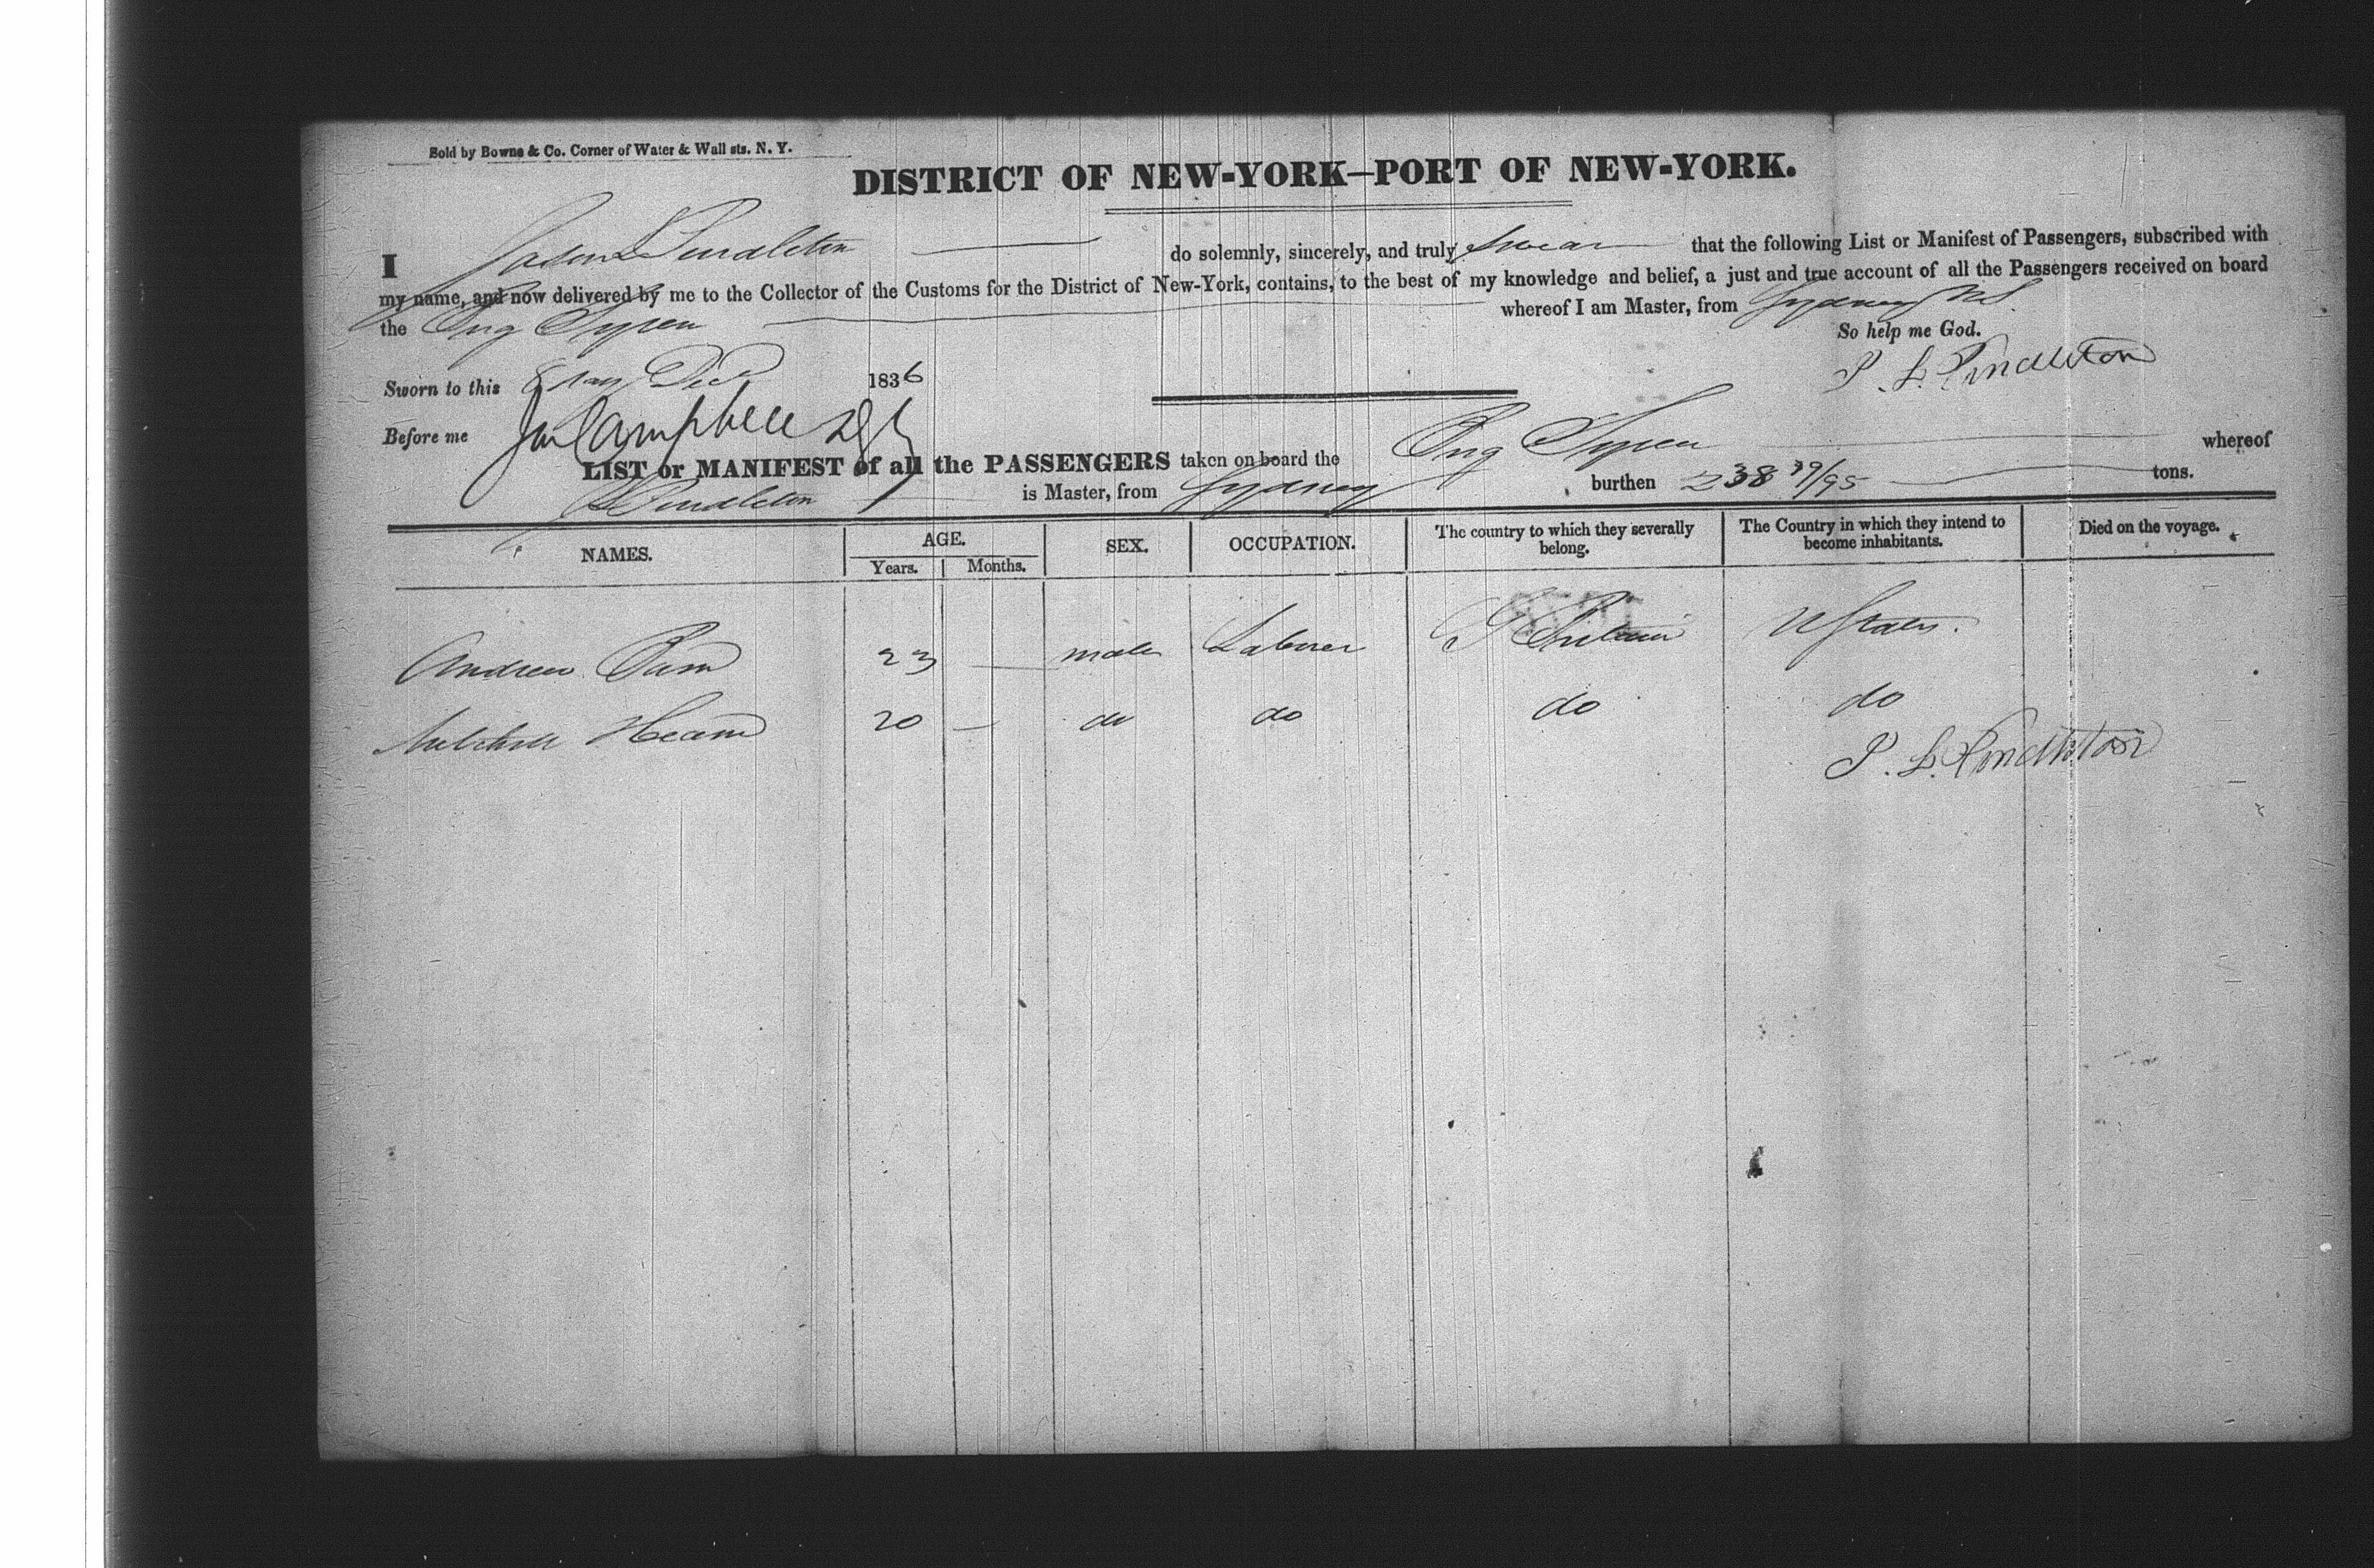 Sold by Bowne & Co. Corner of Water & Wall sts. N. Y.
DISTRICT OF NEW-YORK—PORT OF NEW-YORK.
I Pendleton do solemnly, sincerely, and truly swear that the following List or Manifest of Passengers, subscribed with
my name, and now delivered by me to the Collector of the Customs for the District of New-York, contains, to the best of my knowledge and belief, a just and true account of all the Passengers received on board
the Brig Syren whereof I am Master, from Sydney NS
So help me God.
Sworn to this 8 day Dec 1836 P. L. Pendleton
Before me Campbell
LIST or MANIFEST of all the PASSENGERS taken on board the Brig Syren whereof
Pendleton is Master, from Sydney burthen 238 39/95 tons.
NAMES. AGE. SEX. OCCUPATION. The country to which they severally belong. The Country in which they intend to become inhabitants. Died on the voyage.
Years. Months.
Andrew 23 — male Laborer G Britain U States.
Mitchell 20 — do do do do
P. L. Pendleton